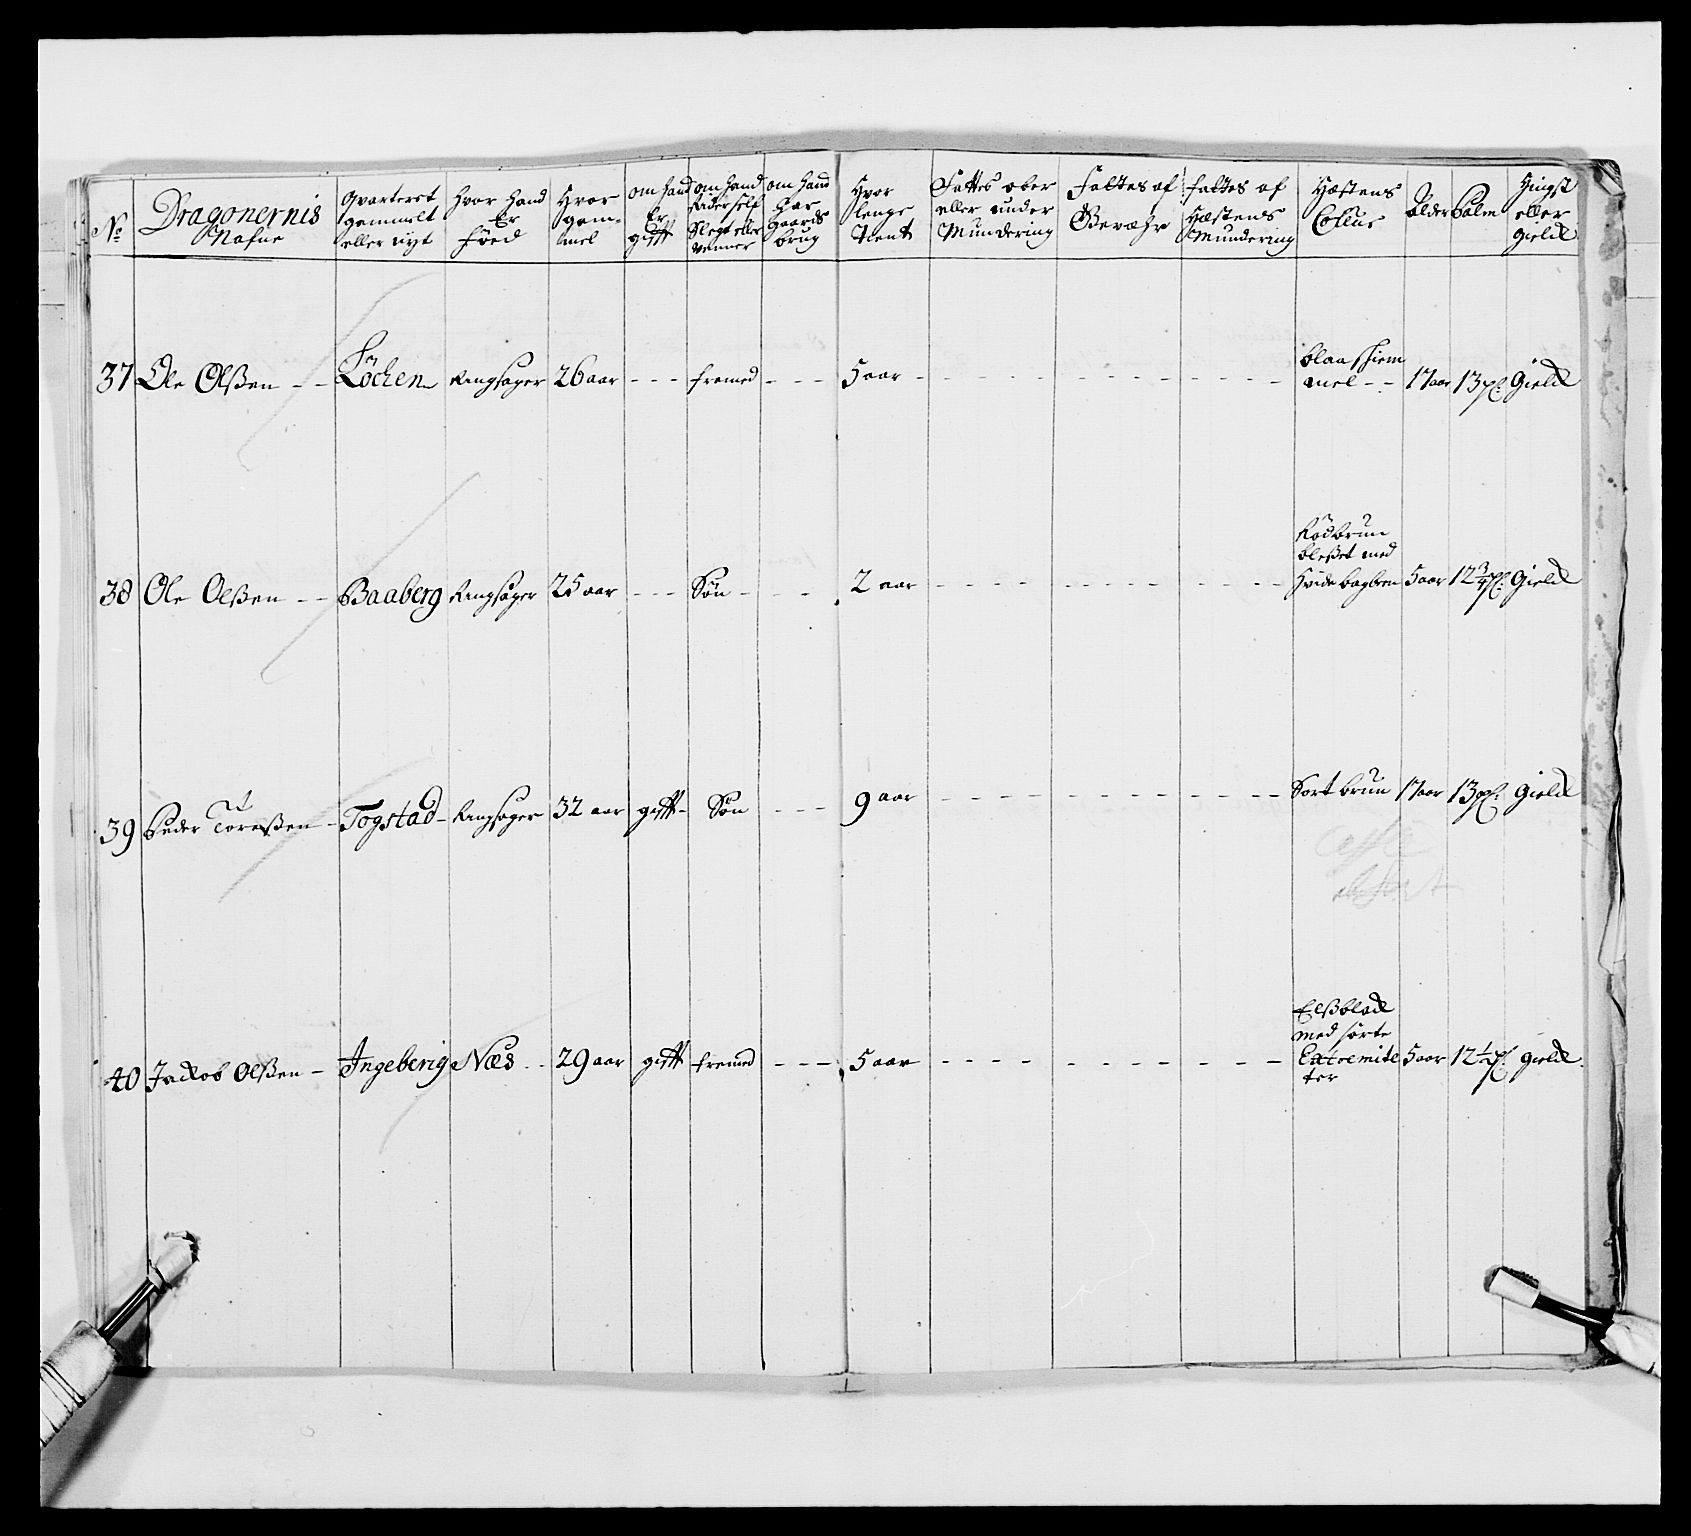 No Dragonernis Nafne | Qvarteret gammelt eller nyt | hvor hand Er föed | Hvor gam= mel | om hand Er gifft | om hand Slegt eller venner | om hand har gaards brug | Hvor lenge tient | Fattes ober eller under Mundering | Fattes af Gevæhr | fattes af Hæstens Mundering | Hæstens Collur | Alder | Palm | Hingst eller gield
37 Ole Olßen - - Löchen Ringsager 26 aar - - - fremed - - - 5 aar - - - blaa skiem mel - - 17 aar 13 pl: Gield
38 Ole Olßen - - Baaberg Ringsager 25 aar - - - Sön - - - 2 aar - - - Rödbrun bleßet med hvide bagben 5 aar 12 3/4 pl: Gield
39 Peder Toreßen - Togstad - Ringsager 32 aar gifft - Sön - - - 9 aar - - - Sort brun 17 aar 13 pl: Gield
40 Jackob Olßen - Ingeberig Næs - - 29 aar gifft fremed - - - 5 aar - - - Elßblack med sorte Extremite ter 5 aar 12 1/2 pl: gield